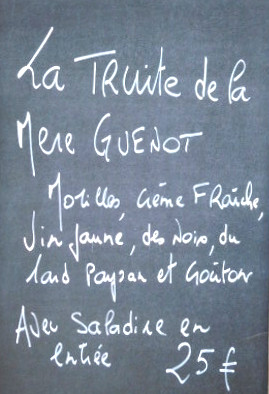 La TRuite de la
Mere GUENOT
Morilles, Crème FRaîche,
Vin Jaune, des Noix, du
lard Paysan et Goûtez
Avec Saladine en
entrée 25 €